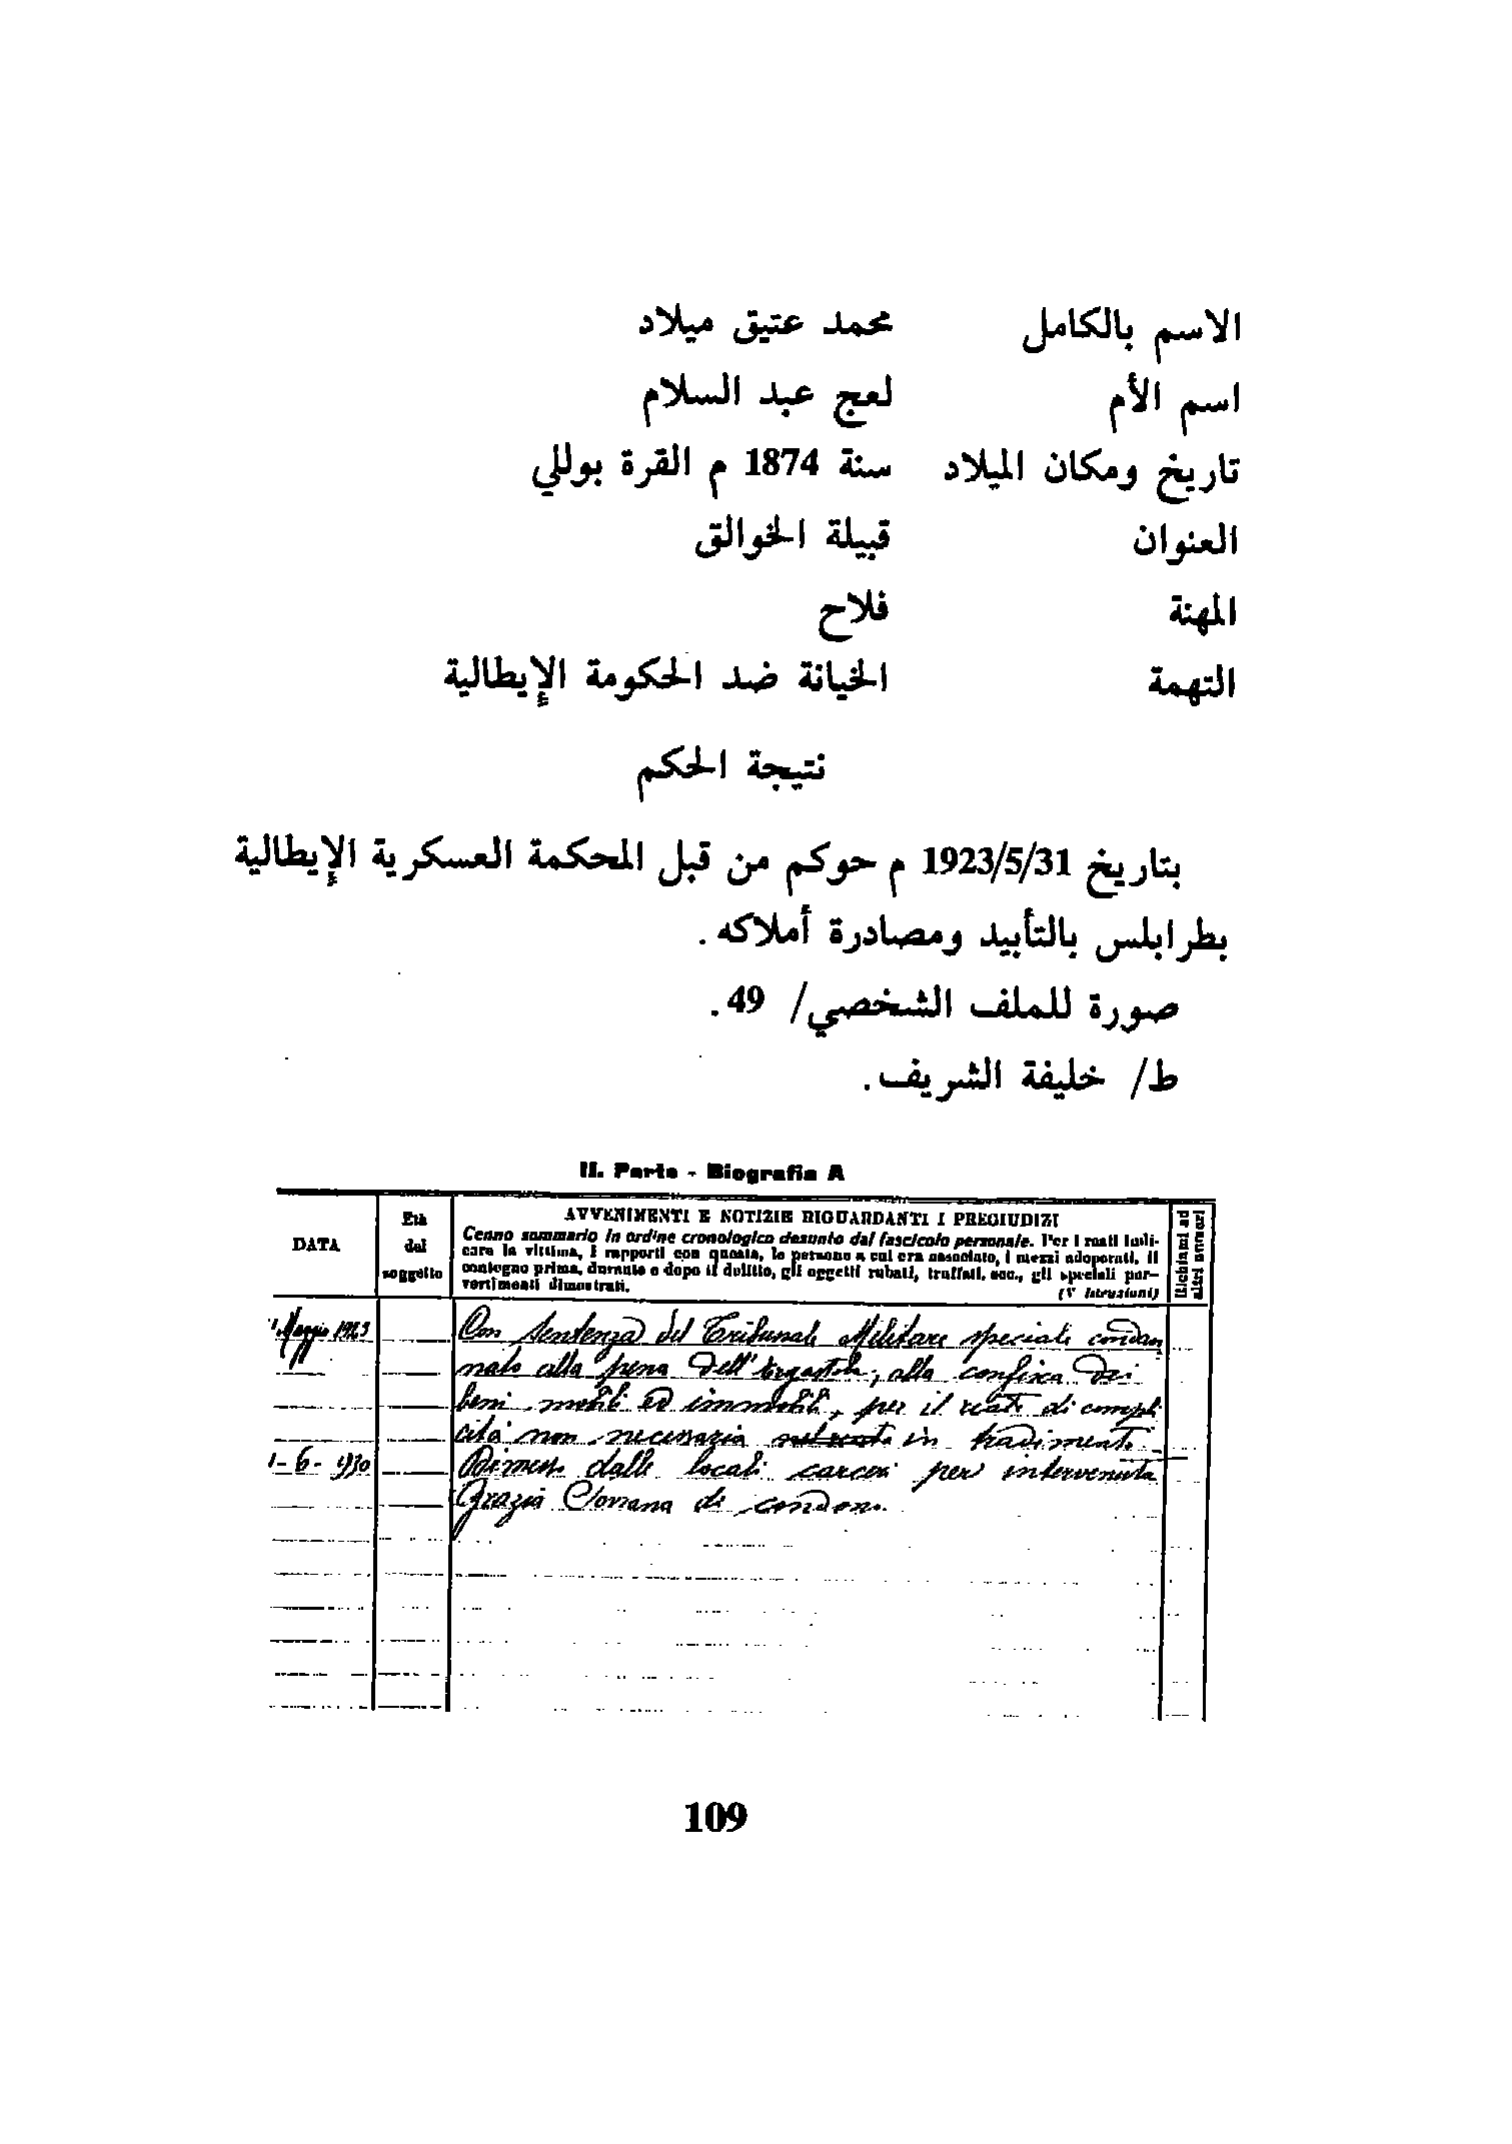 الاسم بالكامل محمد عتيق ميلاد
اسم الأم لعج عبد السلام
تاريخ ومكان الميلاد سنة 1874 م القرة بوللي
العنوان قبيلة الخوالق
المهنة فلاح
التهمة الخيانة ضد الحكومة الإيطالية
نتيجة الحكم
بتاريخ 1923/5/31 م حوكم من قبل المحكمة العسكرية الإيطالية
بطرابلس بالتأبيد ومصادرة أملاكه .
صورة للملف الشخصي/ 49 .
ط/ خليفة الشريف .
II. Parte - Biografia A
DATA
Età
del
soggetto
AVVENIMENTI E NOTIZIE RIGUARDANTI I PREGIUDIZI
Cenno sommario in ordine cronologico desunto dal fascicolo personale. Per i reati indi-
care la vittima, i rapporti con questa, le persone a cui era associato, i mezzi adoperati, il
contegno prima, durante e dopo il delitto, gli oggetti rubati, truffati, ecc., gli speciali per-
vertimenti dimostrati. (V Istruzioni)
Richiami ad
altri
Maggio 1923 Con sentenza del Tribunale Militare speciale condan
nato alla pena dell'ergastolo, alla confisca dei
beni mobili ed immobili, per il reato di compli
cità non necessaria in tradimento
1-6-1930 Dimesso dalle locali carceri per intervenuta
Grazia Sovrana di condono.
109